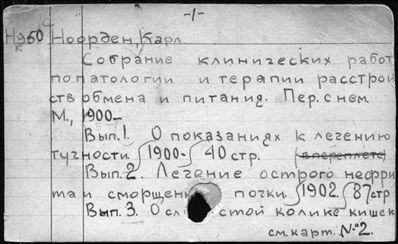 -1-
Н950 Нoорден, Карл
к
Собрание клинических работ
по патологии и терапии расстрой
ств обмена и питания. Пер. с нем.
М., 1900-
Вып. 1. О показаниях к легению
тучности 1900- 40 стр. (в переплете)
Вып. 2. Легение острого нефри
та и сморщен почки 1902 87 стр
Вып. 3. О сл стой колике кишек
см. карт. №2.